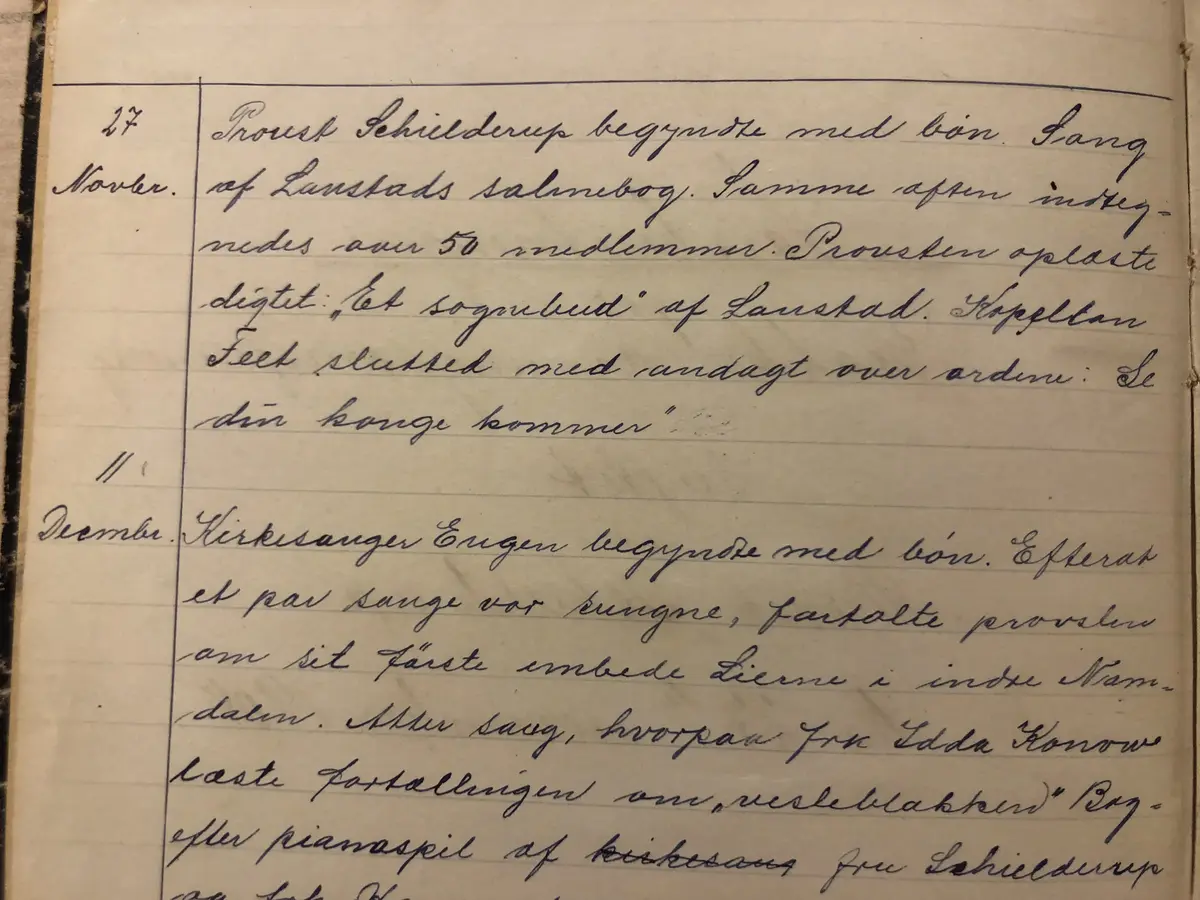 27
Provst Schielderup begyndte med bön. Sang
Novbr.
af Lanstads salmebog. Samme aften indteg-
nedes over 50 medlemmer. Provsten oplæste
digtet: „Et sognebud" af Lanstad. Kapellan
Feet slutted med andagt over ordene: Se
din konge kommer"
11
Decmbr.
Kirkesanger Engen begyndte med bön. Efterat
et par sange var sungne, fortalte provsten
om sit förste embede Lierne i indre Nam-
dalen. Atter sang, hvorpaa frk Idda Konow
læste fortællingen om „vesleblakken" Bag-
efter pianospil af kirkesang fru Schielderup
og frk